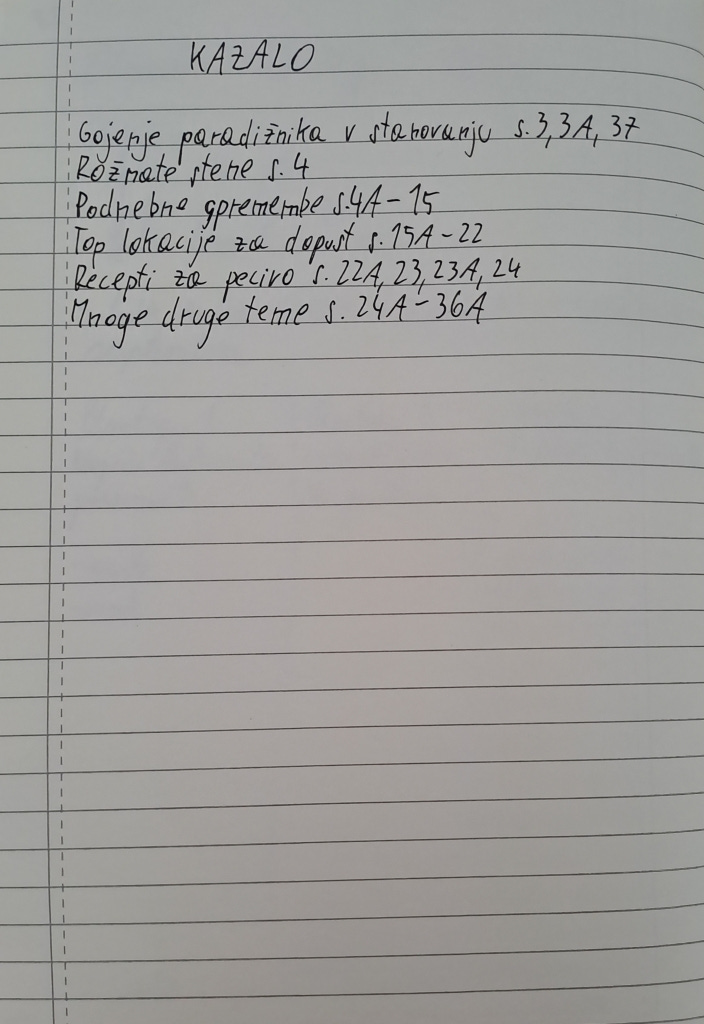 KAZALO
Gojenje paradižnika v stanovanju s. 3, 3A, 37
Rožnate stene s. 4
Podnebne spremembe s. 4A - 15
Top lokacije za dopust s. 15A - 22
Recepti za pecivo s. 22A, 23, 23A, 24
Mnoge druge teme s. 24A - 36A